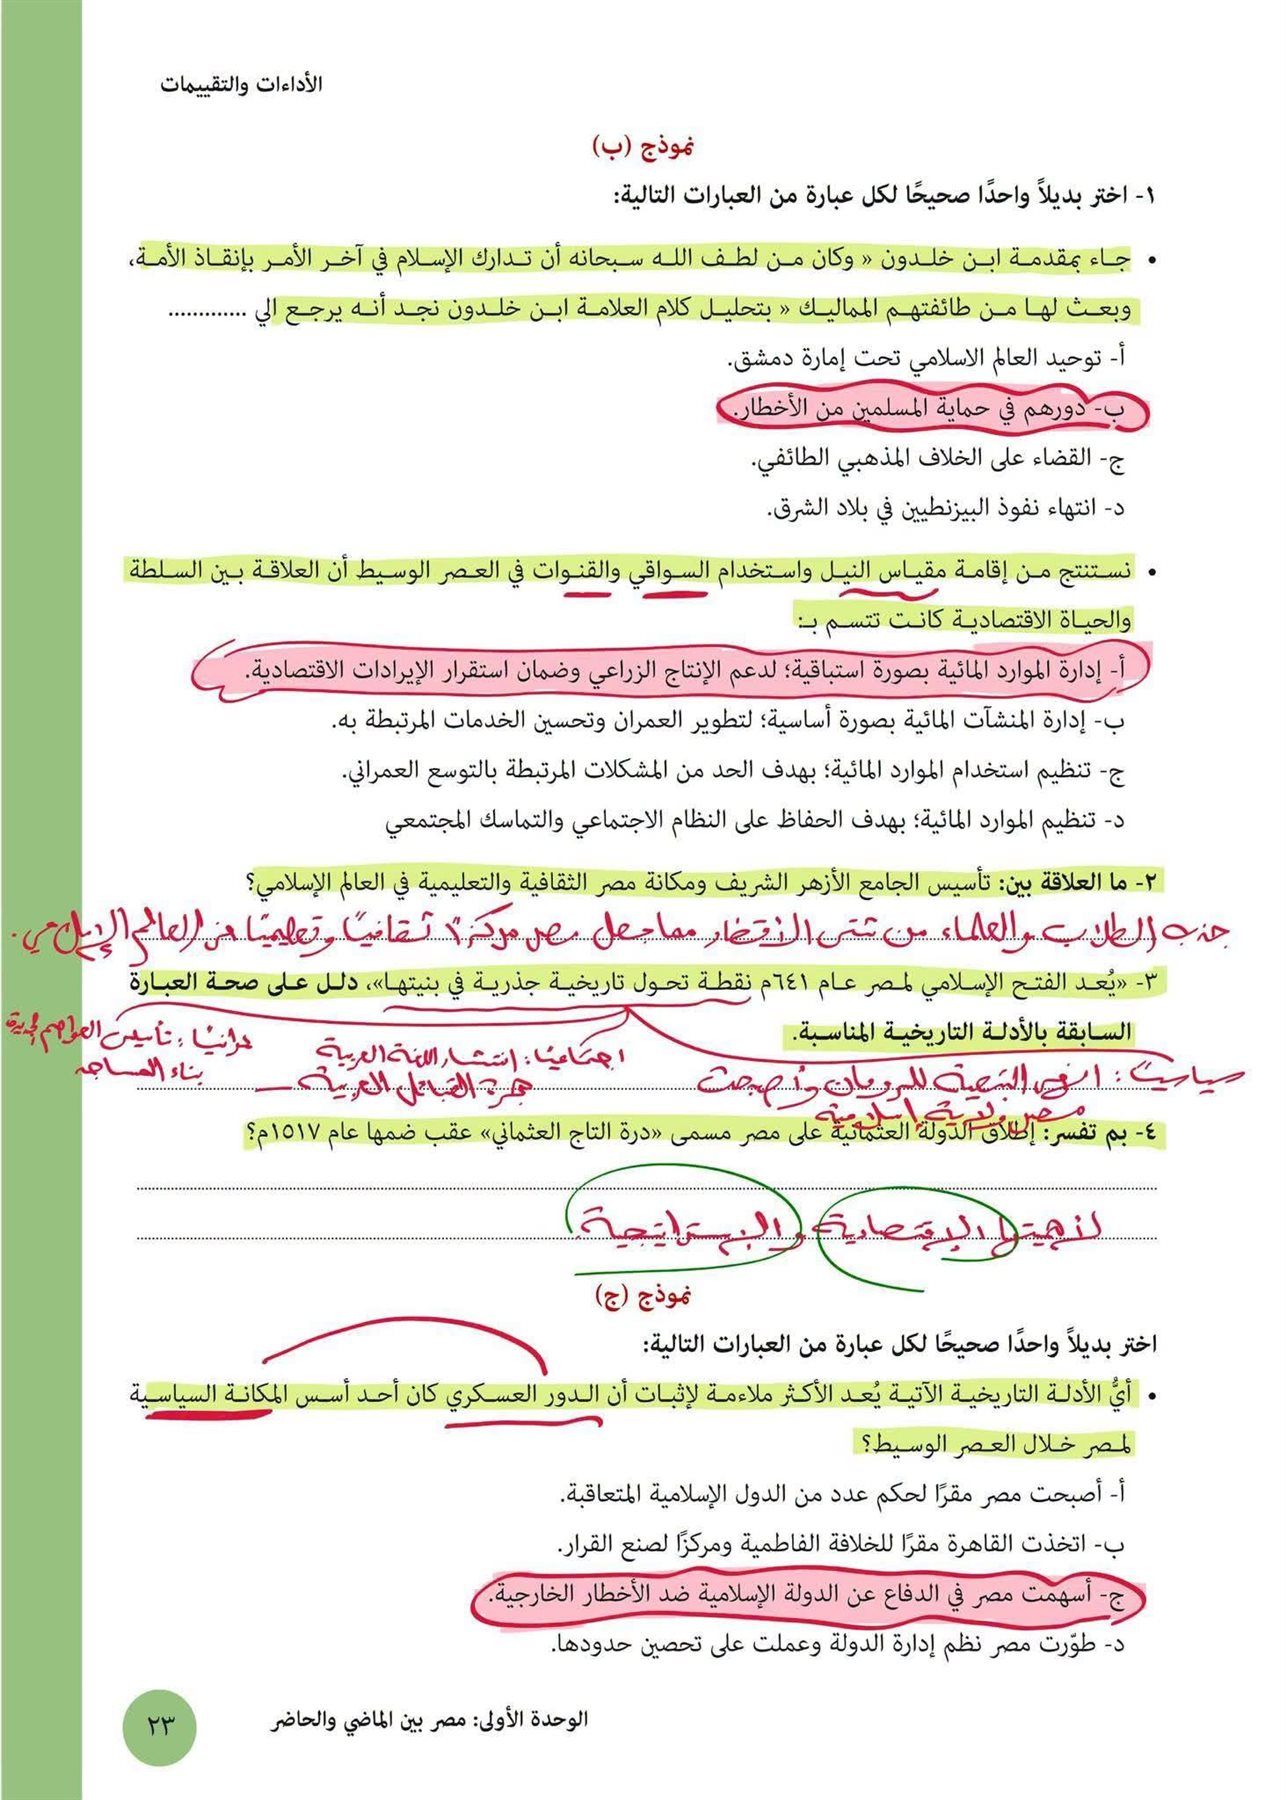 الأداءات والتقييمات
نموذج (ب)
١- اختر بديلاً واحدًا صحيحًا لكل عبارة من العبارات التالية:
• جاء بمقدمة ابن خلدون « وكان من لطف الله سبحانه أن تدارك الإسلام في آخر الأمر بإنقاذ الأمة،
وبعث لها من طائفتهم المماليك « بتحليل كلام العلامة ابن خلدون نجد أنه يرجع الي .............
أ- توحيد العالم الاسلامي تحت إمارة دمشق.
ب- دورهم في حماية المسلمين من الأخطار.
ج- القضاء على الخلاف المذهبي الطائفي.
د- انتهاء نفوذ البيزنطيين في بلاد الشرق.
• نستنتج من إقامة مقياس النيل واستخدام السواقي والقنوات في العصر الوسيط أن العلاقة بين السلطة
والحياة الاقتصادية كانت تتسم بـ:
أ- إدارة الموارد المائية بصورة استباقية؛ لدعم الإنتاج الزراعي وضمان استقرار الإيرادات الاقتصادية.
ب- إدارة المنشآت المائية بصورة أساسية؛ لتطوير العمران وتحسين الخدمات المرتبطة به.
ج- تنظيم استخدام الموارد المائية؛ بهدف الحد من المشكلات المرتبطة بالتوسع العمراني.
د- تنظيم الموارد المائية؛ بهدف الحفاظ على النظام الاجتماعي والتماسك المجتمعي
٢- ما العلاقة بين: تأسيس الجامع الأزهر الشريف ومكانة مصر الثقافية والتعليمية في العالم الإسلامي؟
جذب الطلاب والعلماء من شتى الأقطار مما جعل مصر مركزًا ثقافيًا وتعليميًا في العالم الإسلامي.
٣- «يُعد الفتح الإسلامي لمصر عام ٦٤١م نقطة تحول تاريخية جذرية في بنيتها»، دلل على صحة العبارة
السابقة بالأدلة التاريخية المناسبة.
سياسيًا: انهى التبعية للرومان وأصبحت
مصر ولاية إسلامية
اجتماعيًا: انتشار اللغة العربية
هجرة القبائل العربية
عمرانيًا: تأسيس العواصم الجديدة
بناء المساجد
٤- بم تفسر: إطلاق الدولة العثمانية على مصر مسمى «درة التاج العثماني» عقب ضمها عام ١٥١٧م؟
لأهميتها الاقتصادية والاستراتيجية.
نموذج (ج)
اختر بديلاً واحدًا صحيحًا لكل عبارة من العبارات التالية:
• أيُّ الأدلة التاريخية الآتية يُعد الأكثر ملاءمة لإثبات أن الدور العسكري كان أحد أسس المكانة السياسية
لمصر خلال العصر الوسيط؟
أ- أصبحت مصر مقرًا لحكم عدد من الدول الإسلامية المتعاقبة.
ب- اتخذت القاهرة مقرًا للخلافة الفاطمية ومركزًا لصنع القرار.
ج- أسهمت مصر في الدفاع عن الدولة الإسلامية ضد الأخطار الخارجية.
د- طوّرت مصر نظم إدارة الدولة وعملت على تحصين حدودها.
الوحدة الأولى: مصر بين الماضي والحاضر
٢٣